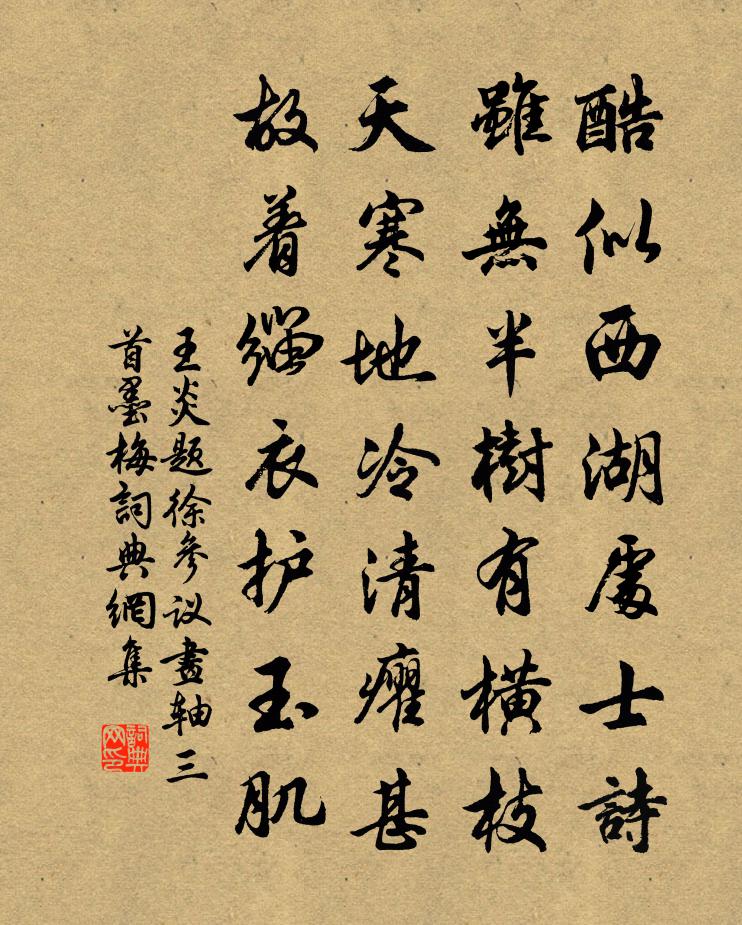 酷似西湖處士詩
雖無半樹有橫枝
天寒地冷清癯甚
故着緇衣护玉肌
王炎題徐參议畫轴三
首墨梅詞典網集
詞典网印